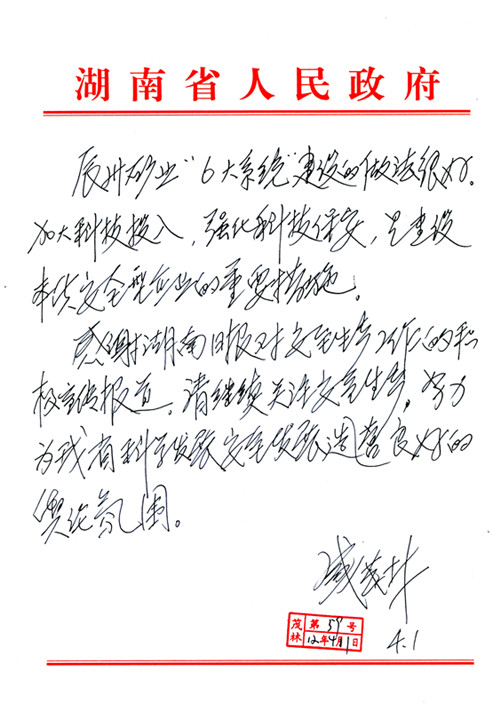 湖南省人民政府
辰州矿业“6大系统”建设的做法很好。
加大科技投入，强化科技保安，是建设
本质安全型企业的重要措施。
感谢湖南日报对安全生产工作的积
极宣传报道，请继续关注安全生产，努力
为我省科学发展安全发展造营良好的
舆论氛围。
盛茂林
4.1
茂林 第59号
12年4月1日